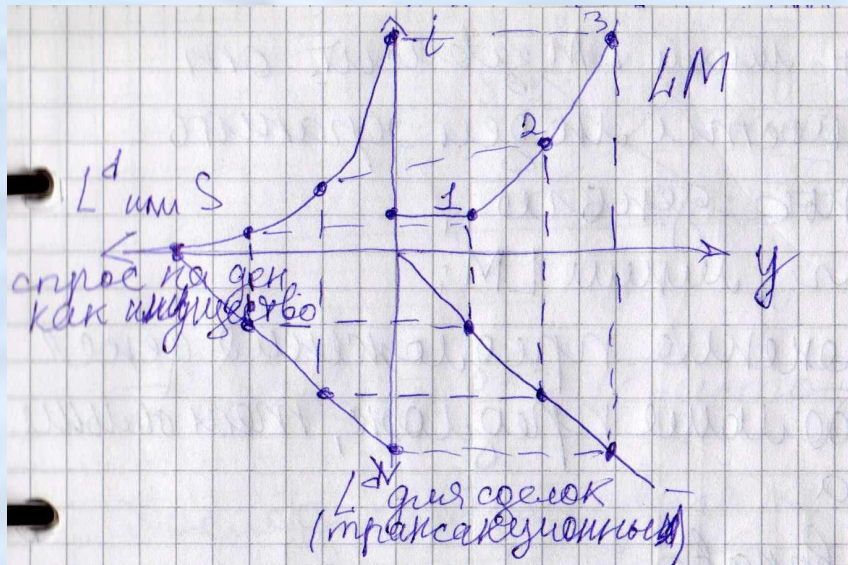 i
3
LM
2
1
L^d или S
y
спрос на ден
как имущество
L^d для сделок
(трансакционный)